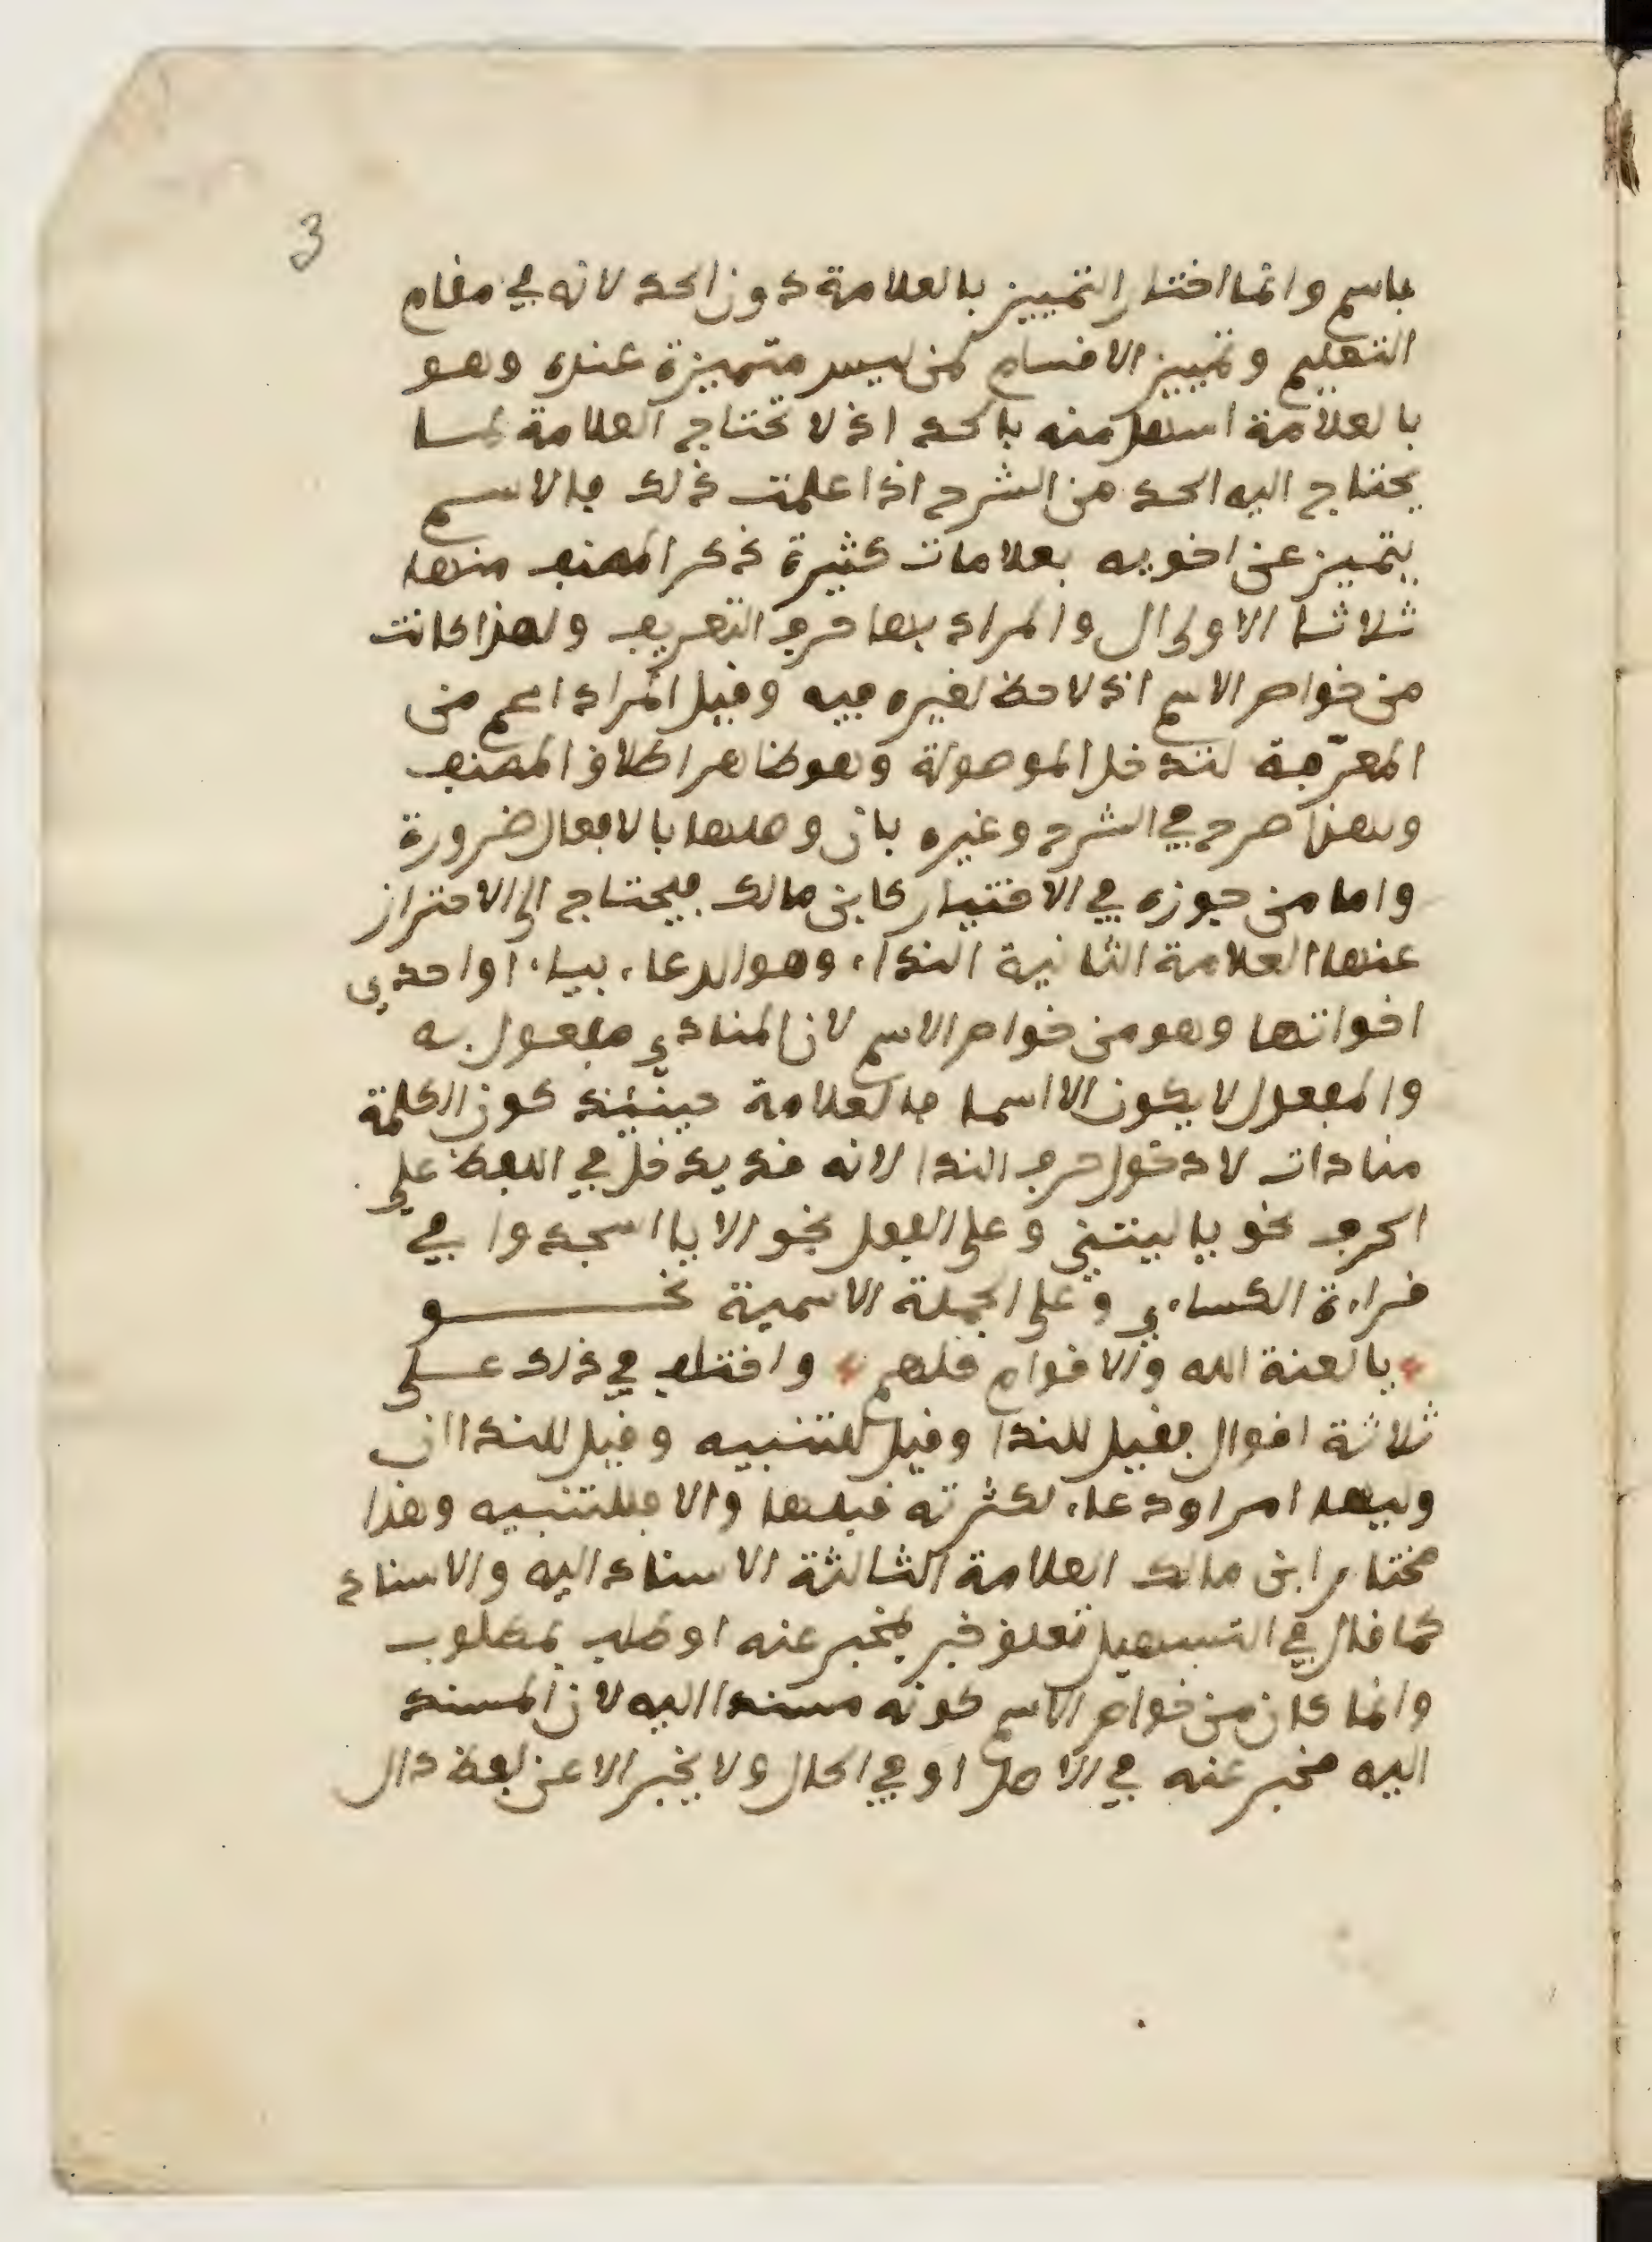 3
باسم وانما اختار التمييز بالعلامة دون الحد لانه في مقام
التعليم وتمييز الاقسام لمن ليس متميزة عنده وهو
بالعلامة اسهل منه بالحد اذ لا تحتاج العلامة لما
يحتاج اليه الحد من الشرح اذا علمت ذلك فالاسم
يتميز عن اخويه بعلامات كثيرة ذكر المصنف منها
ثلاثا الاولى ال والمراد بها حرف التعريف ولهذا كانت
من خواص الاسم اذ لا حظ لغيره فيه وقيل المراد اعم من
المعرّفة لتدخل الموصولة وهو ظاهر اطلاق المصنف
ولهذا صرح في الشرح وغيره بان وصلها بالافعال ضرورة
واما من جوزه في الاختيار كابن مالك فيحتاج الى الاحتراز
عنها العلامة الثانية النداء وهو الدعاء بياء او احدى
اخواتها وهو من خواص الاسم لان المنادى مفعول به
والمفعول لا يكون الا اسما فالعلامة حينئذ كون الكلمة
منادات لا دخول حرف الندا لانه قد يدخل في اللفظ على
الحرف نحو يا ليتني وعلى الفعل نحو الا يا اسجدوا في
قراءة الكساءي وعلى الجملة الاسمية نحو
يا لعنة الله والاقوام كلهم واختلف في ذلك على
ثلاثة اقوال فقيل للندا وقيل للتنبيه وقيل للندا ان
وليها امر او دعاء لكثرته قبلها والا فللتنبيه وهذا
مختار ابن مالك العلامة الثالثة الاسناد اليه والاسناد
كما قال في التسهيل تعلق خبر بمخبر عنه او طلب بمطلوب
وانما كان من خواص الاسم كونه مسندا اليه لان المسند
اليه مخبر عنه في الاصل او في الحال ولا يخبر الا عن لفظ دال